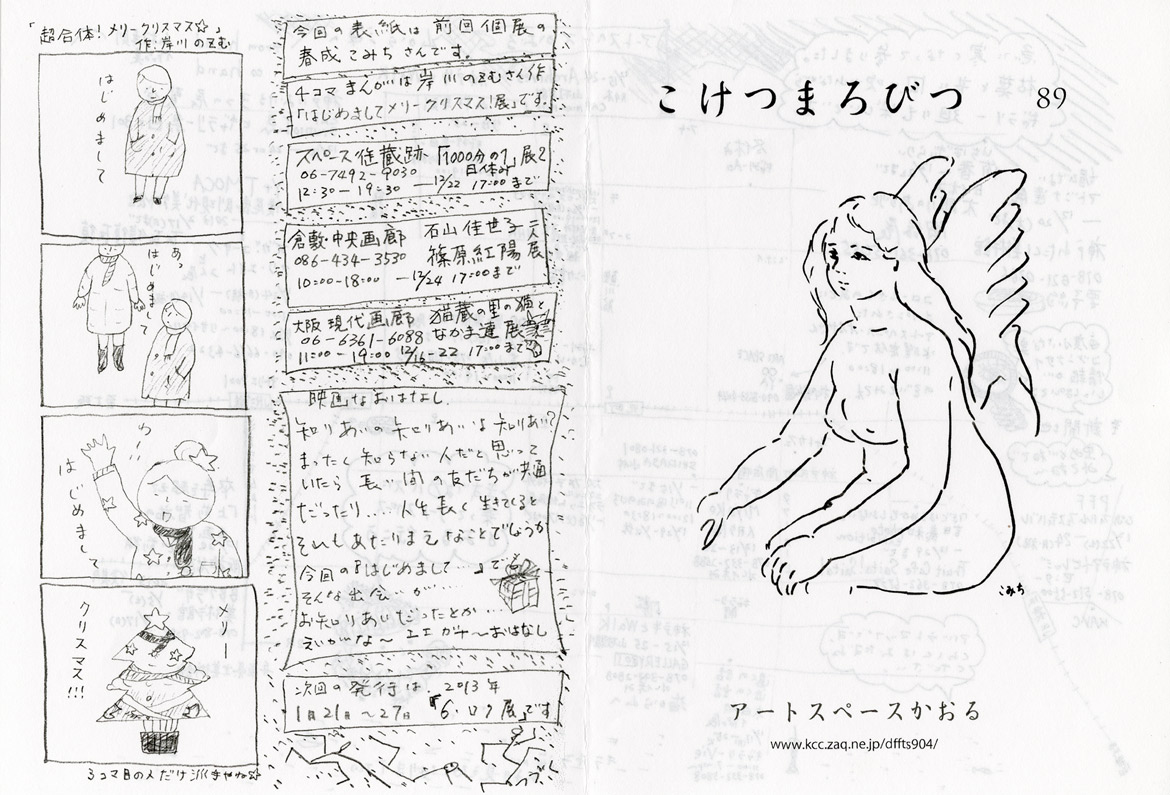 「超合体！メリークリスマス☆」
作：岸川のぞむ
はじめまして
あっ
はじめまして
わー
はじめまして
メリー
クリスマス!!!
3コマ目の人だけ
今回の表紙は 前回個展の
春成こみちさんです。
4コマまんがは岸川のぞむさん作
「はじめましてメリークリスマス!展」です。
スペース倉蔵跡「1000分の1」展2
06-7492-9030 日休み
12:30－19:30 －12/22 17:00まで
倉敷・中央画廊 石山佳世子 二人
086-434-3530 篠原紅陽 展
10:00-18:00 －12/24 17:00まで
大阪現代画廊 猫蔵の里の猫と
06-6361-6088 なかま達展
11:00－19:00 12/16-22 17:00まで
映画なおはなし.
知りあいの知りあいは知りあい?
まったく知らない人だと思って
いたら 長い間の友だちが共通
だったり… 人を長く生きてると
それもあたりまえなことでしょうか
今回の『はじめまして…』で
そんな出会…が…
お知りあいだったとか…
えいがな～ エエガナ～おはなし
次回の発行は. 2013年
1月21日～27日 『6・ロク展』です
こけつまろびつ 89
こみち
アートスペースかおる
www.kcc.zaq.ne.jp/dffts904/